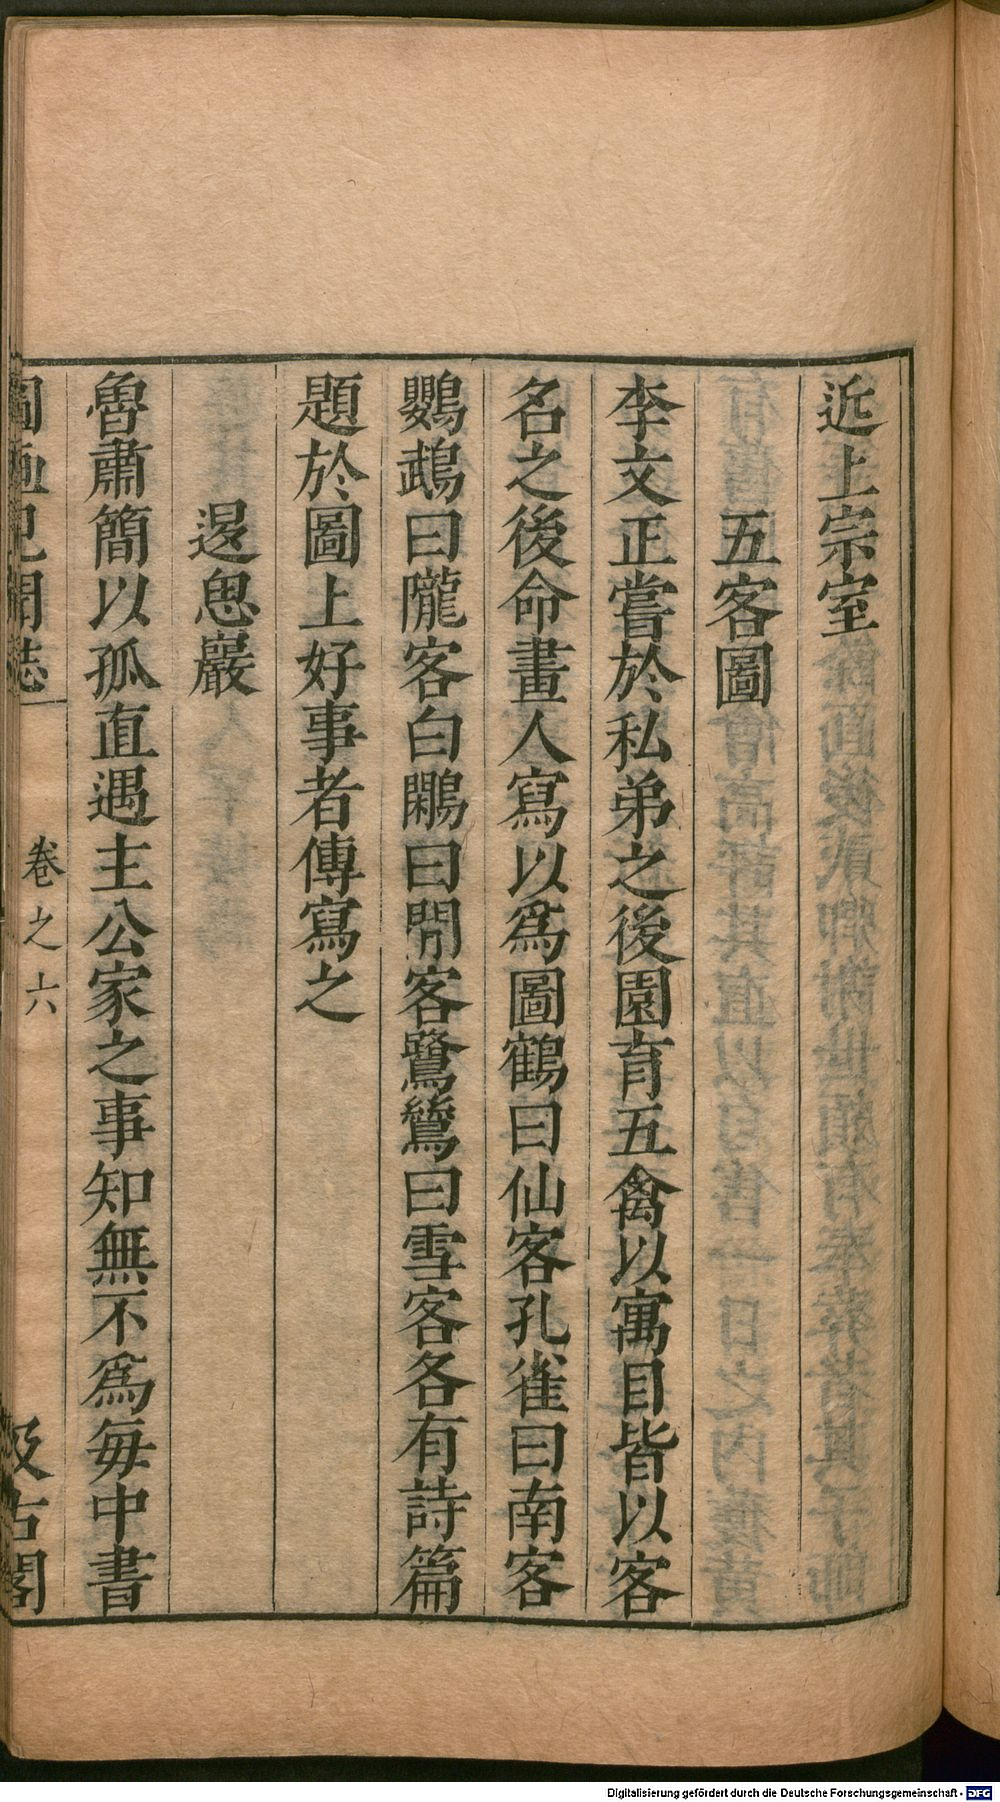 近上宗室
五客圖
李文正嘗於私弟之後園育五禽以寓目皆以客
名之後命畫人寫以為圖鶴曰仙客孔雀曰南客
鸚鵡曰隴客白鷴曰閒客鷺鷥曰雪客各有詩篇
題於圖上好事者傳寫之
退思巖
魯肅簡以孤直遇主公家之事知無不為每中書
圖畫見聞誌 卷之六 汲古閣
Digitalisierung gefördert durch die Deutsche Forschungsgemeinschaft - DFG